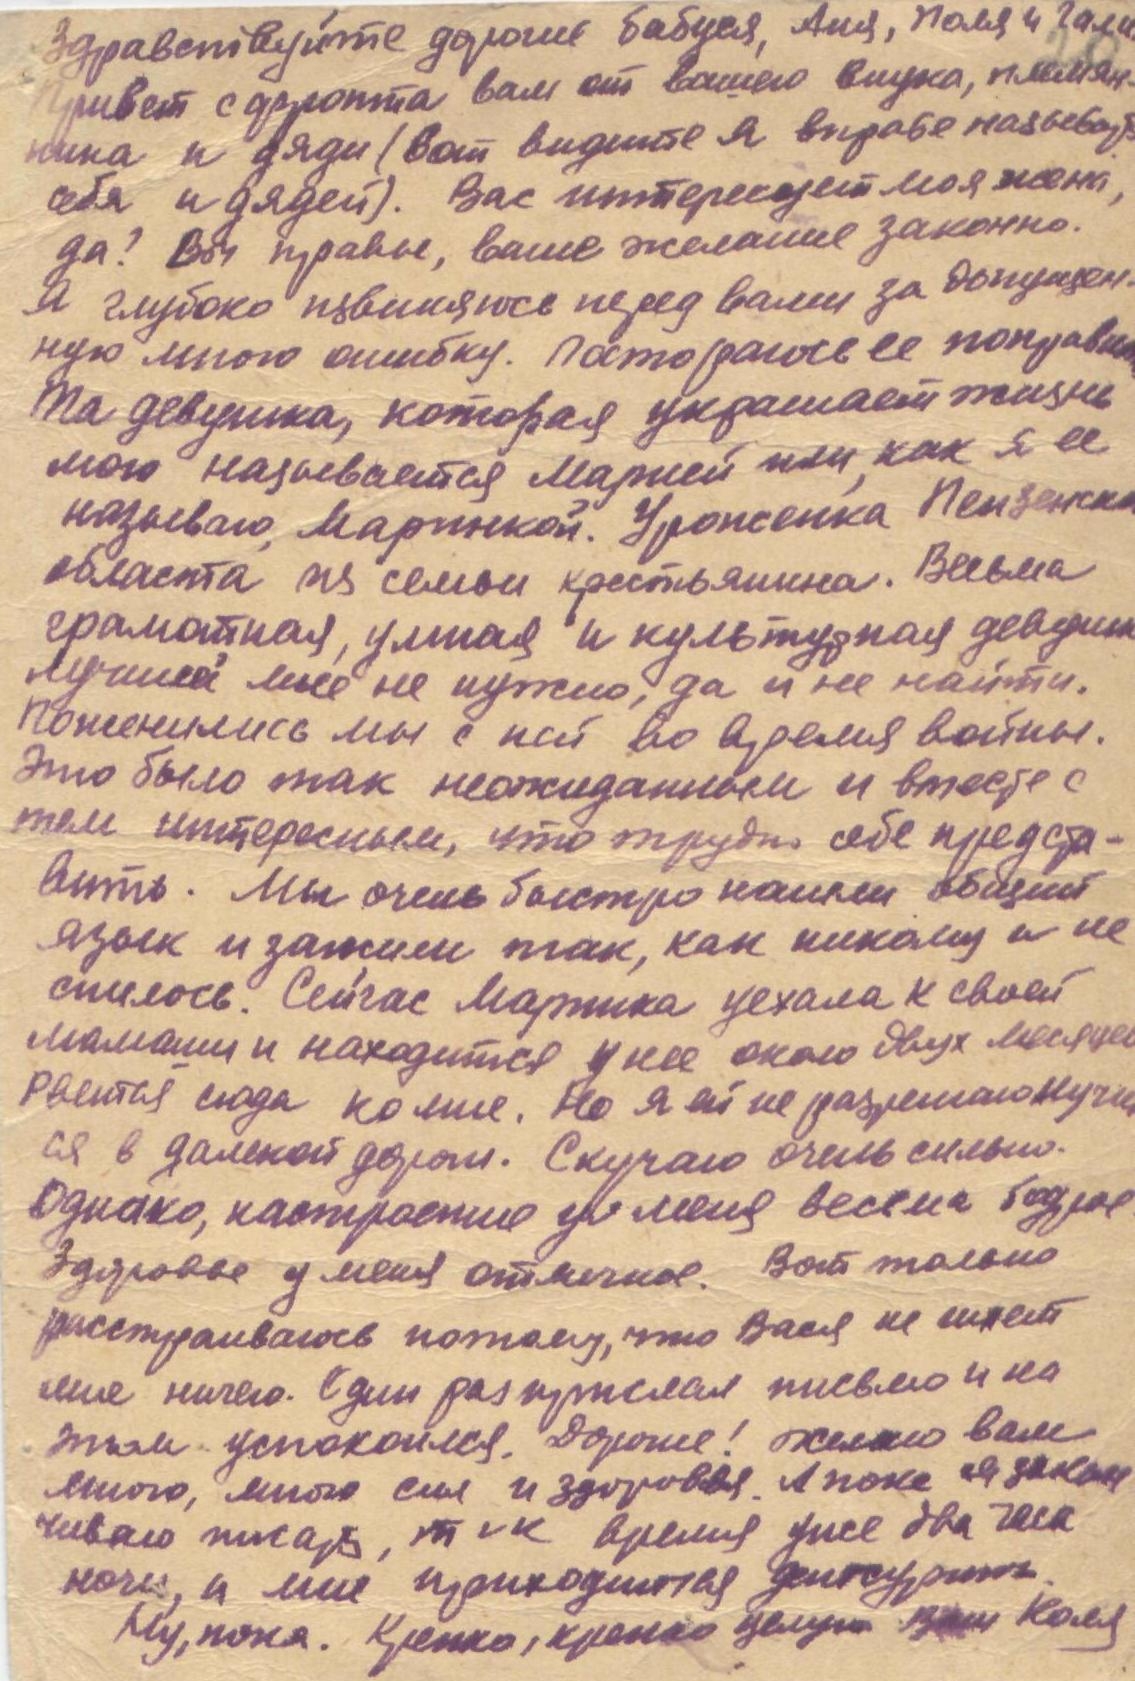 Здравствуйте дорогие бабуся, Аня, Поля и Галя
Привет с фронта вам от вашего внука, племян-
ника и дяди (вот видите я вправе называть
себя и дядей). Вас интересует моя жена,
да! Вы правы, ваше желание законно.
Я глубоко извиняюсь перед вами за допущен-
ную мною ошибку. Постараюсь ее поправить
Та девушка, которая украшает жизнь
мою называется Марией или, как я ее
называю, Маринкой. Уроженка Пензенской
области из семьи крестьянина. Весьма
грамотная, умная и культурная девушка
лучшей мне не нужно, да и не найти.
Поженились мы с ней во время войны.
Это было так неожиданным и вместе с
тем интересным, что трудно себе предста-
вить. Мы очень быстро нашли общий
язык и зажили так, как никому и не
снилось. Сейчас Маринка уехала к своей
мамаши и находится у нее около двух месяцев
Рвется сюда ко мне. Но я ей не разрешаю мучить
ся в далекой дороги. Скучаю очень сильно.
Однако, настроение у меня весьма бодрое.
Здоровье у меня отличное. Вот только
расстраиваюсь потому, что Вася не шлет
мне ничего. Один раз прислал письмо и на
этом успокоился. Дорогие! желаю вам
много, много сил и здоровья. А пока я закан
чиваю писать, т к время уже два часа
ночи, и мне приходится дежурить.
Ну, пока. Крепко, крепко целую ваш Коля